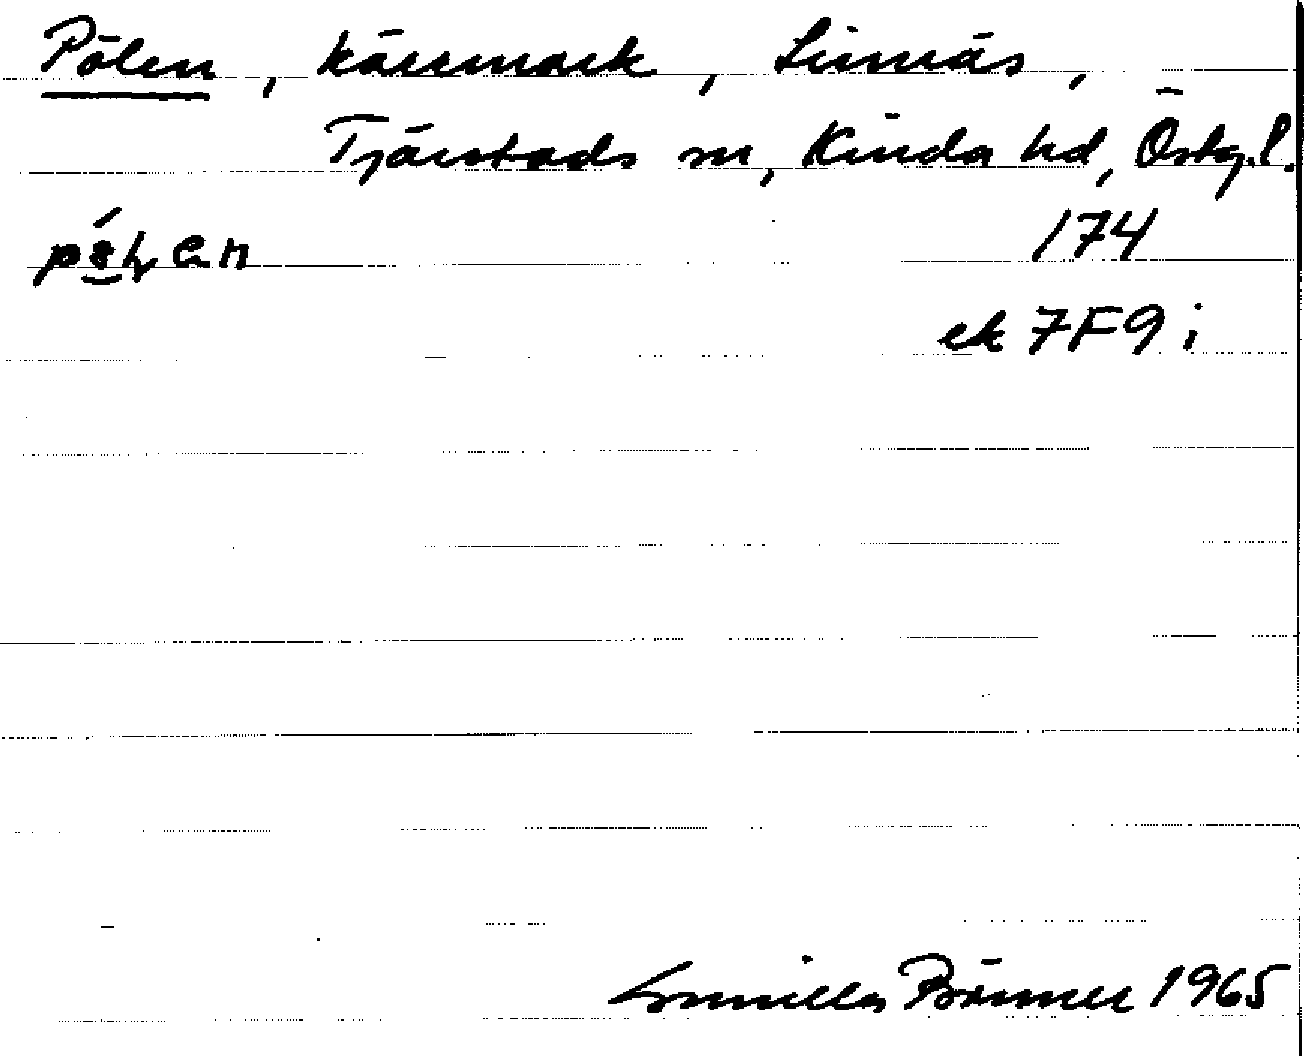 Pölen, kärrmark, Linnäs,
Tjärstads sn, Kinda hd, Östg.l.
174
ek 7F9i
Gunilla Brömmer 1965